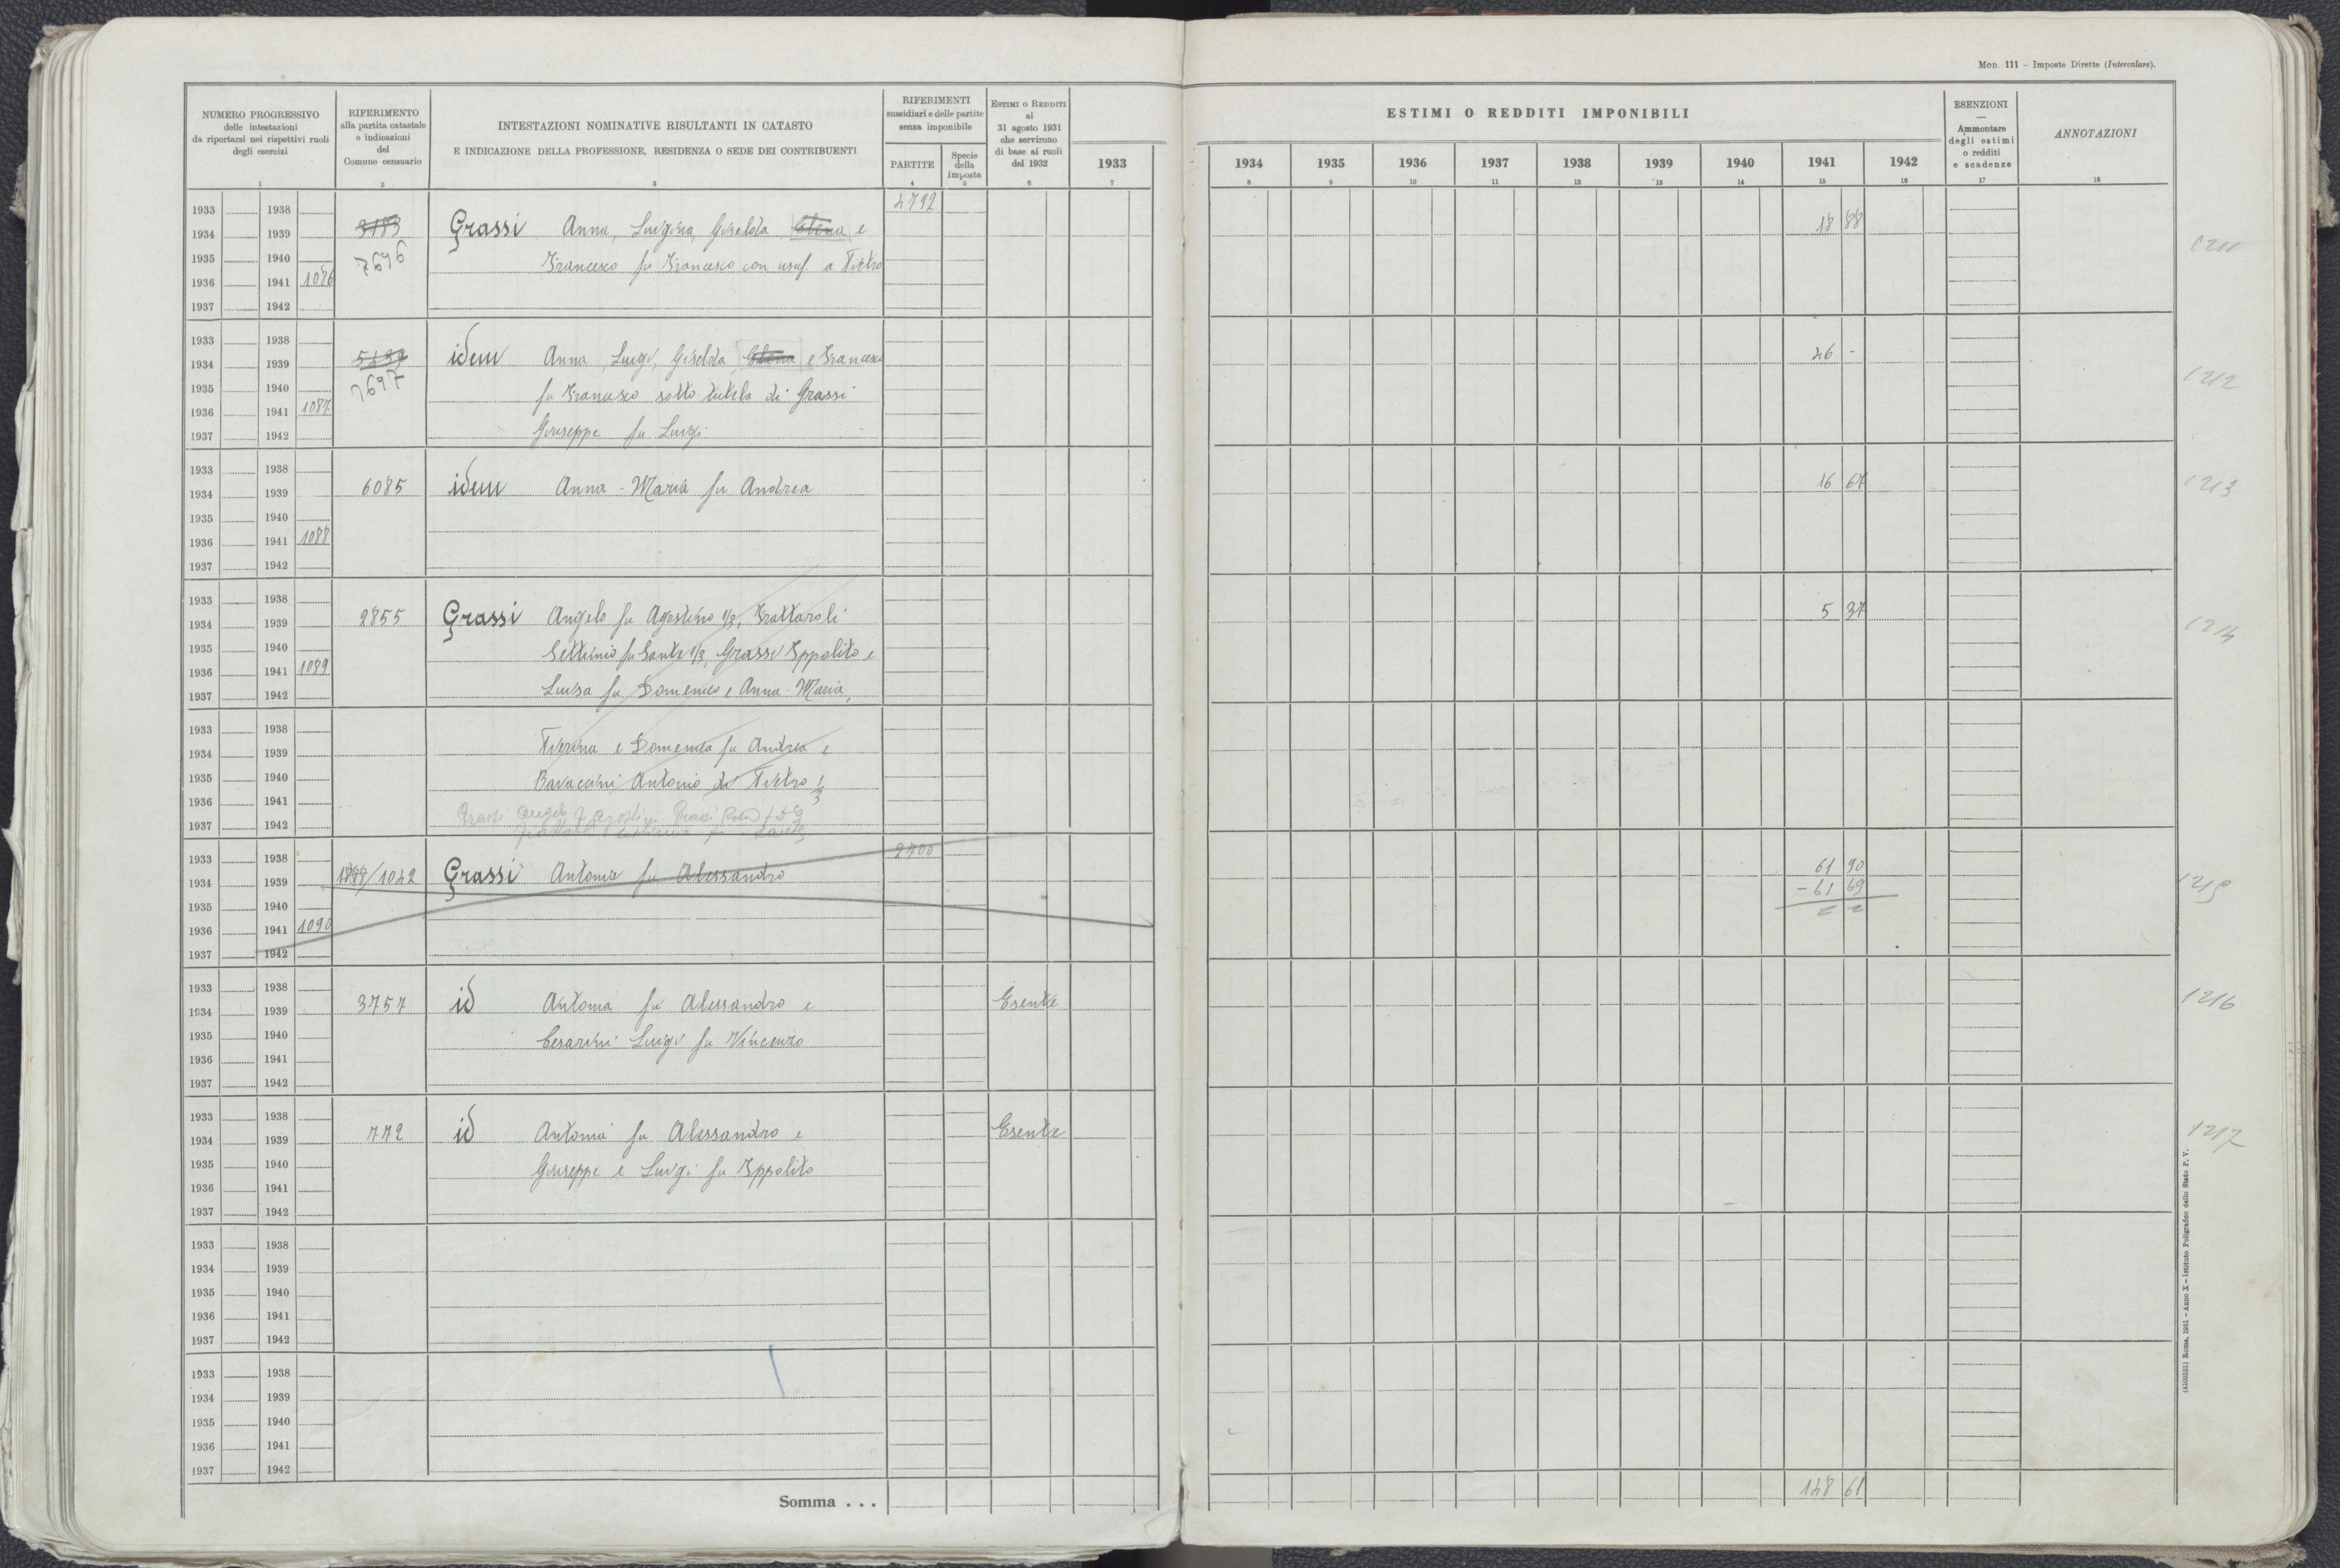 Mod. 111 – Imposte Dirette (Intercalare).
NUMERO PROGRESSIVO
delle intestazioni
da riportarsi nei rispettivi ruoli
degli esercizi
1
RIFERIMENTO
alla partita catastale
e indicazioni
del
Comune censuario
2
INTESTAZIONI NOMINATIVE RISULTANTI IN CATASTO
E INDICAZIONE DELLA PROFESSIONE, RESIDENZA O SEDE DEI CONTRIBUENTI
3
RIFERIMENTI
sussidiari e delle partite
senza imponibile
PARTITE
4
Specie
della
imposta
5
Estimi o Redditi
al
31 agosto 1931
che servirono
di base ai ruoli
del 1932
6
1933
7
ESTIMI O REDDITI IMPONIBILI
1934 1935 1936 1937 1938 1939 1940 1941 1942
8 9 10 11 12 13 14 15 16
ESENZIONI
—
Ammontare
degli estimi
o redditi
e scadenze
17
ANNOTAZIONI
18
4792
1933 1938
1934 1939 3183 Grassi Anna, Luigina, Giselda Elena e 18 88
1935 1940 7696 Francesco fu Francesco con usuf. a Pietro
1936 1941 1086
1937 1942
1211
1933 1938
1934 1939 idem Anna, Luigi, Giselda, Elena e Francesco 46 -
1935 1940 7697 fu Francesco sotto tutela di Grassi
1936 1941 1087
1937 1942 Giuseppe fu Luigi
1212
1933 1938
1934 1939 6085 idem Anna - Maria fu Andrea 16 67
1935 1940
1936 1941 1088
1937 1942
1213
1933 1938
1934 1939 2855 Grassi Angelo fu Agostino 1/3, Frattaroli 5 37
1935 1940 Settimio fu Sante 1/3, Grassi Ippolito e
1936 1941 1089
1937 1942 Luisa fu Domenico e Anna-Maria,
1214
1933 1938
1934 1939 Pierina e Domenica fu Andrea e
1935 1940 Antonio di Pietro 1/3
1936 1941 Grassi Angelo
1937 1942
1933 1938 2700
1934 1939 /1042 Grassi Antonia fu Alessandro 61 90
1935 1940 - 61 69
1936 1941 1090
1937 1942
1215
1933 1938
1934 1939 3757 id Antonia fu Alessandro e Esente
1935 1940 Cesarini Luigi fu Vincenzo
1936 1941
1937 1942
1216
1933 1938
1934 1939 772 id Antonia fu Alessandro e Esente
1935 1940 Giuseppe e Luigi fu Ippolito
1936 1941
1937 1942
1217
1933 1938
1934 1939
1935 1940
1936 1941
1937 1942
1933 1938
1934 1939
1935 1940
1936 1941
1937 1942
Somma . . . 148 61
(4103331) Roma, 1931 – Anno X – Istituto Poligrafico dello Stato P. V.